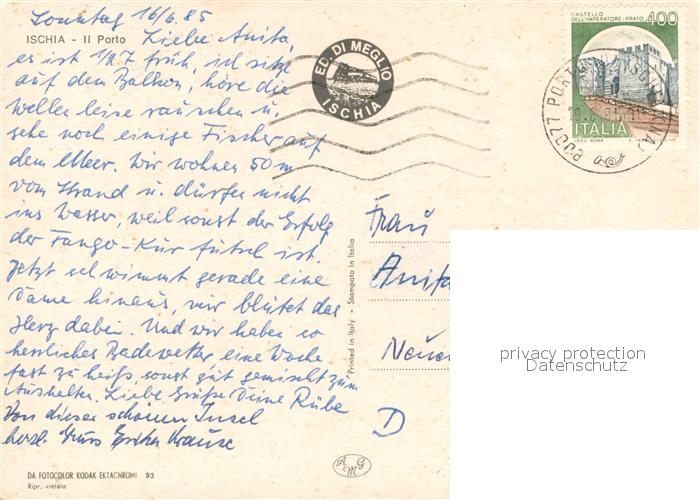 Sonntag 16/6.85
ISCHIA - Il Porto
Liebe Anita,
es ist 1/2 7 früh, ich sitze
auf dem Balkon, höre die
Wellen leise rauschen u.
sehe noch einige Fischer auf
dem Meer. Wir wohnen 50 m
vom Strand u. dürfen nicht
ins Wasser, weil sonst der Erfolg
der Fango-Kur futsch ist.
Jetzt schwimmt gerade eine
Dame hinaus, mir blutet das
Herz dabei. Und wir haben so
herrliches Badewetter eine Woche
fast zu heiß, sonst gut gemischt zum
Aushalten. Liebe Grüße Deine Rübe
Von dieser schönen Insel
herzl. Gruss Erika Krause
DA FOTOCOLOR KODAK EKTACHROME 93
Ripr. vietata
ED. DI MEGLIO
ISCHIA
CASTELLO
DELL'IMPERATORE - PRATO
400
ITALIA
Printed in Italy - Stampato in Italia
Frau
Anita
D
AMG
privacy protection
Datenschutz